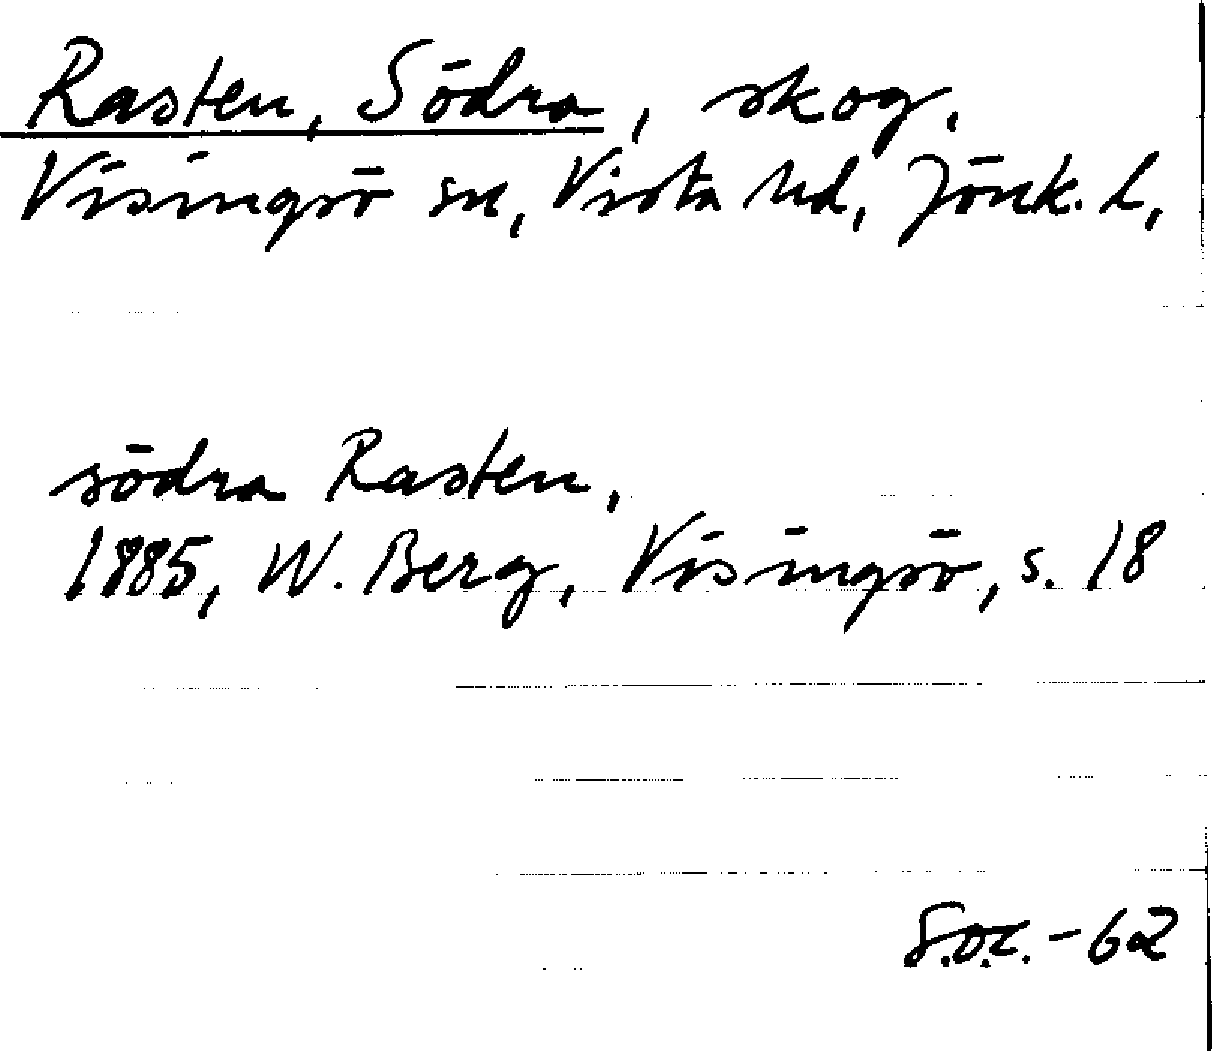 Rasten, Södra, skog,
Visingsö sn, Vista hd, Jönk. l,
södra Rasten,
1885, W. Berg, Visingsö, s. 18
S.o.c. -62